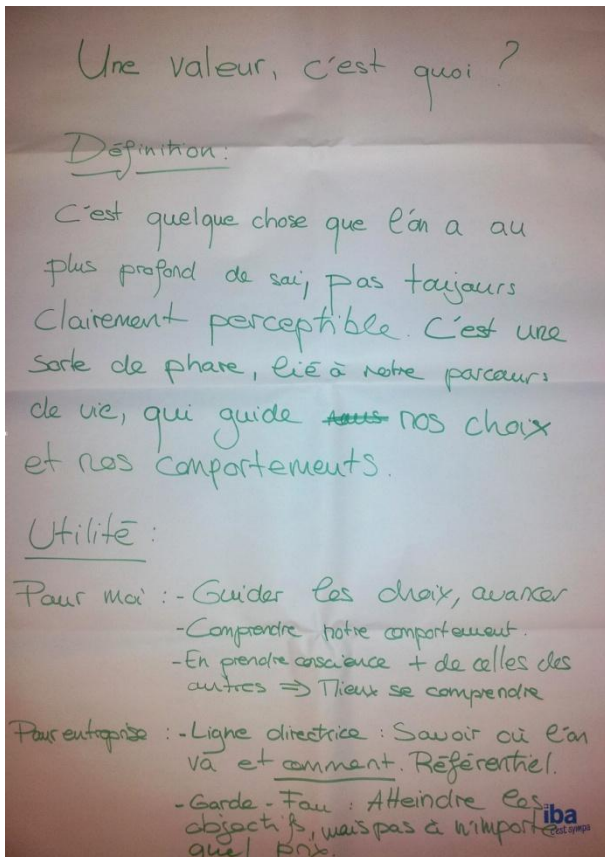 Une valeur, c'est quoi ?
Définition :
C'est quelque chose que l'on a au
plus profond de soi, pas toujours
clairement perceptible. C'est une
sorte de phare, lié à notre parcours
de vie, qui guide nos choix
et nos comportements.
Utilité :
Pour moi : - Guider les choix, avancer
- Comprendre notre comportement.
- En prendre conscience + de celles des
autres => Mieux se comprendre
Pour entreprise : - Ligne directrice : Savoir où l'on
va et comment. Référentiel.
- Garde-Fou : Atteindre les
objectifs, mais pas à n'importe
quel prix.
iba
c'est sympa